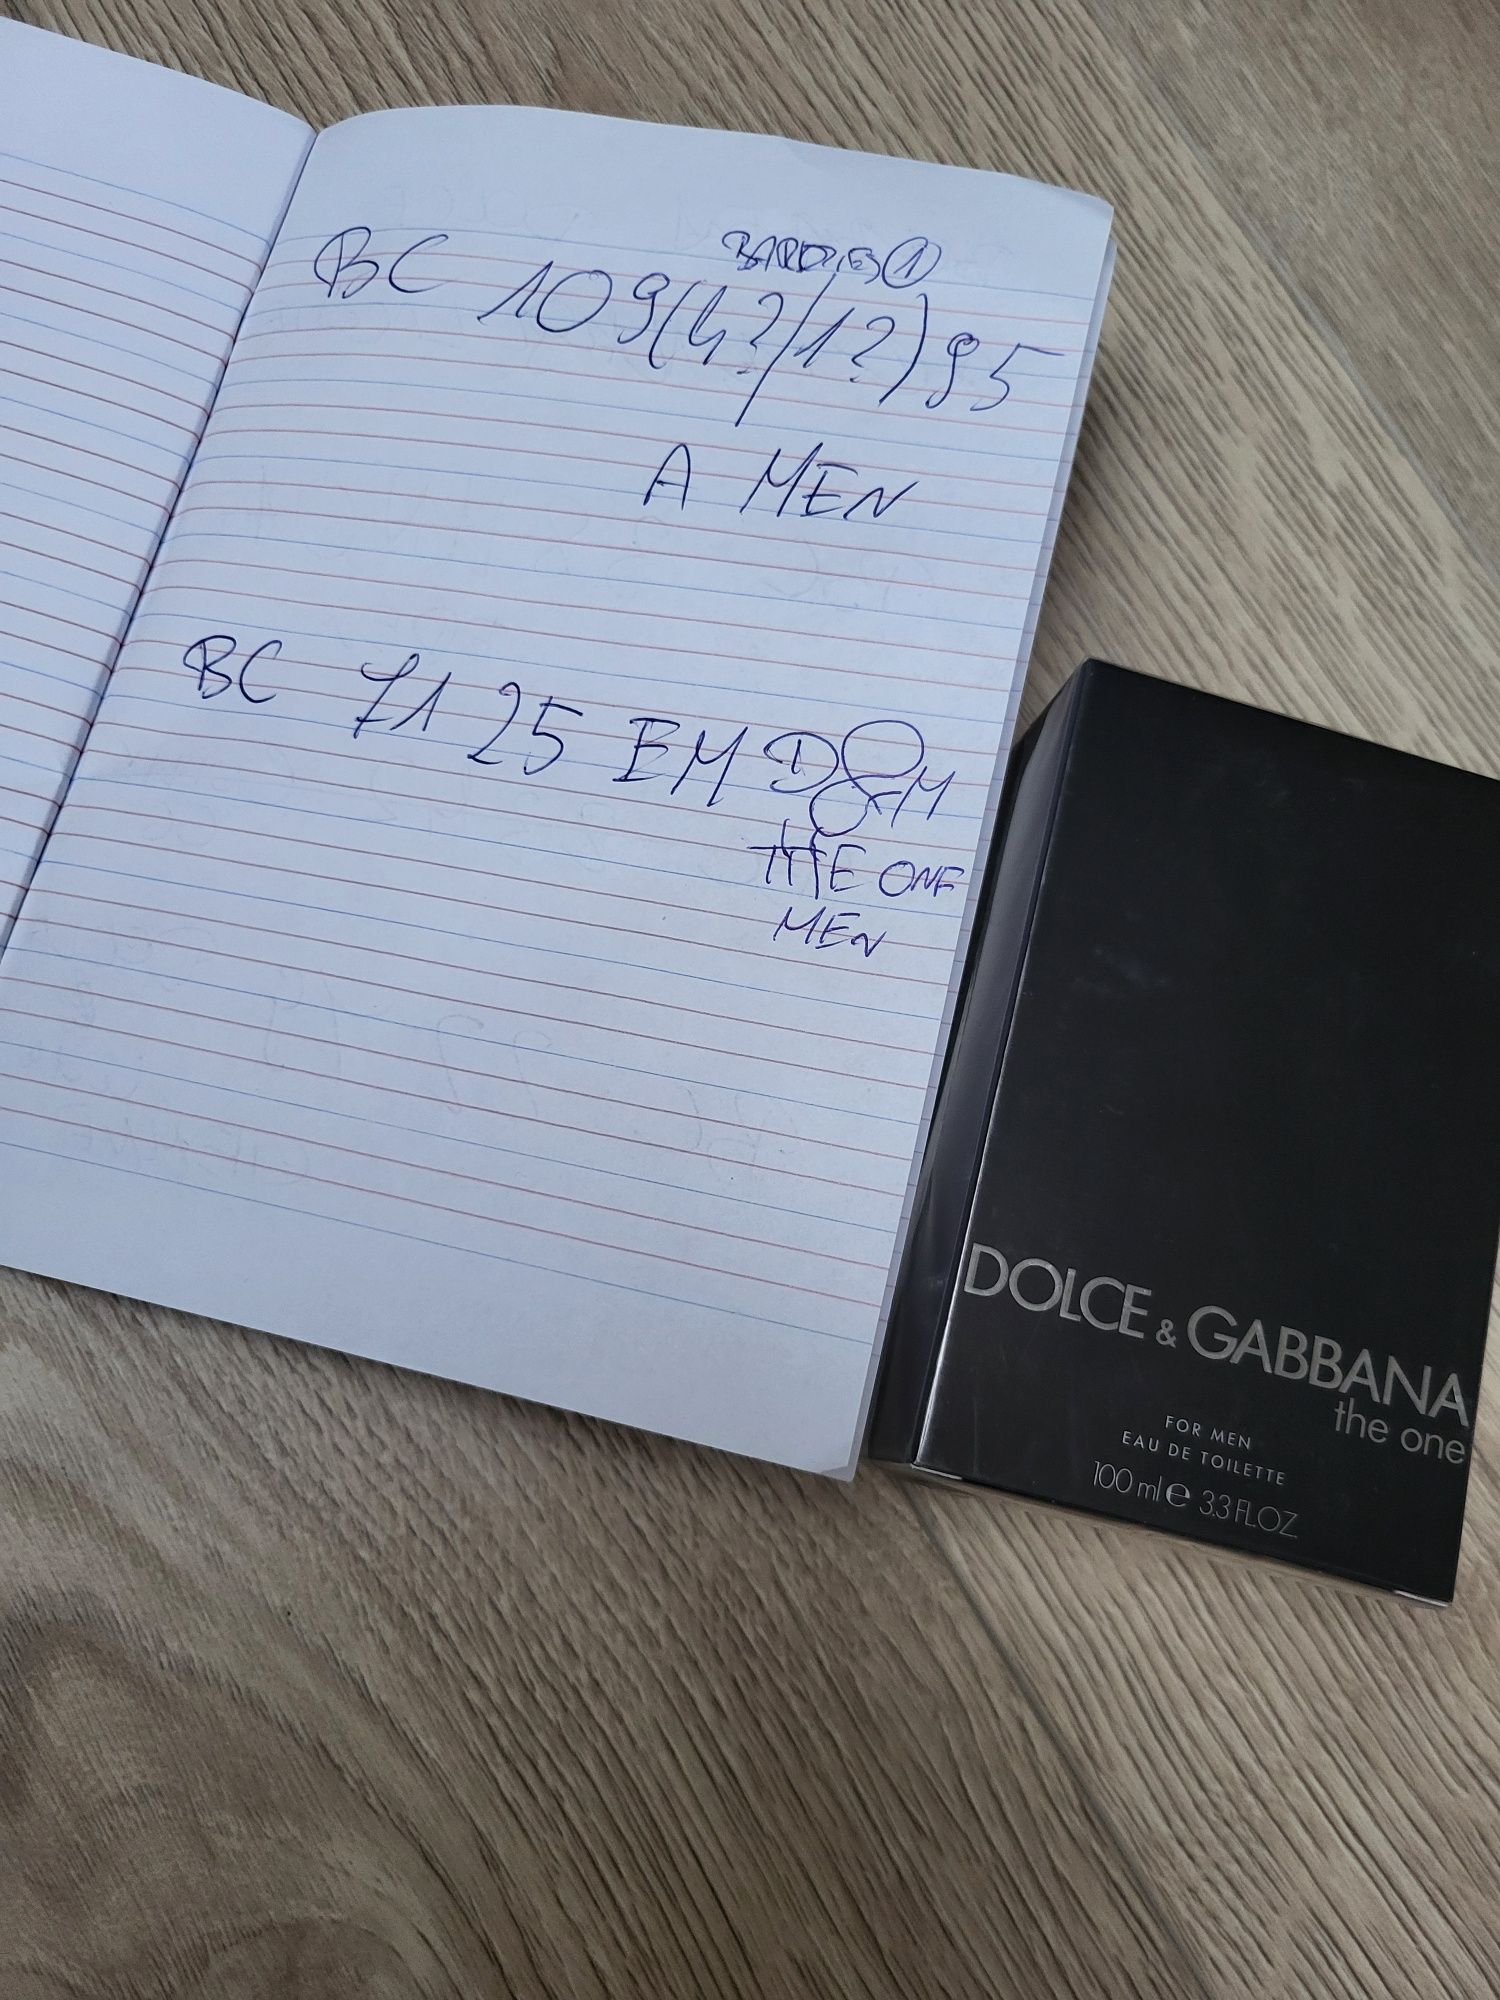 BARDZIEJ ①
BC 109(4?/1?)95
A MEN
BC 71 25 EM D&M
THE ONE
MEN
DOLCE & GABBANA
the one
FOR MEN
EAU DE TOILETTE
100 ml e 3.3 FL.OZ